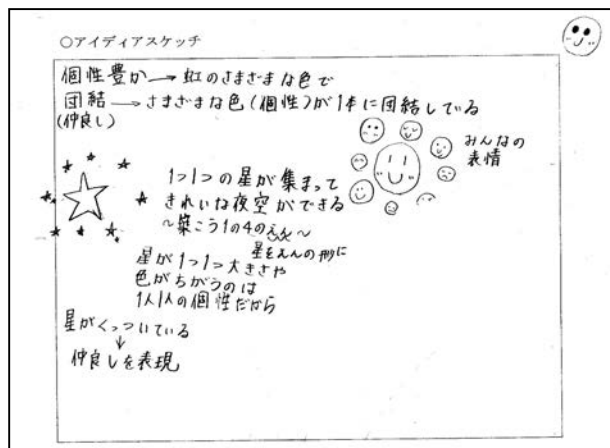 ○アイディアスケッチ
個性豊か→虹のさまざまな色で
団結→さまざまな色(個性)が1本に団結してる
(仲良し)
みんなの
表情
1つ1つの星が集まって
きれいな夜空ができる
～築こう1の4のえん～
星をえんの形に
星が1つ1つ大きさや
色がちがうのは
1人1人の個性だから
星がくっついている
↓
仲良しを表現